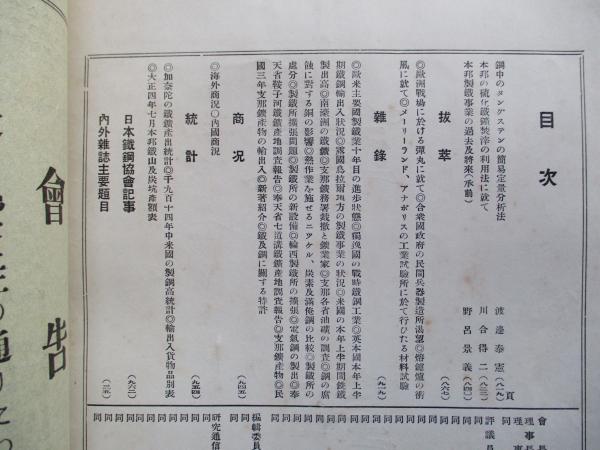 目次
鋼中のタングステンの簡易定量分析法 渡邊泰憲(八一九)頁
本邦の硫化鐵鑛焚滓の利用法に就て 川合得二(八三三)
本邦製鐵事業の過去及將來(承前) 野呂景義(八四四)
拔萃
◎歐洲戰場に於ける彈丸に就て◎合衆國政府の民間兵器製造所渴望◎熔鑛爐の術 (八六七)
風に就て◎メーリーランド、アナポリスの工業試驗所に於て行ひたる材料試驗
雜錄 (九一九)
◎歐米主要國製鐵業十年目の進歩狀態◎獨逸國の戰時鐵鋼工業◎英本國本年上半
期鐵鋼輸出入狀況◎露國烏拉爾地方の製鐵事業の狀況◎米國の本年上半期間銑鐵
製出高◎南濠洲の鐵鑛◎支那鐵務署裁撤と鑛業家◎支那各省油礦の調査◎鋼の腐
蝕に對する銅の影響◎熱作業を施せるニッケル、炭素及滿俺鋼の比較◎製鐵所の
處分◎製鐵所擴張問題◎製鐵所の新設備◎輪西製鐵所の擴張◎電氣鋼の製出◎奉
天省鞍子河鐵鑛產地調査報告◎奉天省七道溝鐵鑛產地調査報告◎支那鑛產物◎民
國三年支那鑛產物の輸出入◎新著紹介◎鐵及鋼に關する特許
商況 (九四五)
◎海外商況〇內國商況
統計 (九五四)
◎加奈陀の鐵鑛產出統計◎千九百十四年中米國の製鋼高統計◎輸出入貨物品別表
◎大正四年七月本邦鐵山及炭坑產額表
日本鐵鋼協會記事 (九六二)
內外雜誌主要題目
會長
理事長
理事
同
評議員
同
同
同
同
同
同
同
同
同
同
同
編輯委員
同
同
研究通信
同
同
同
同
同
同
會告